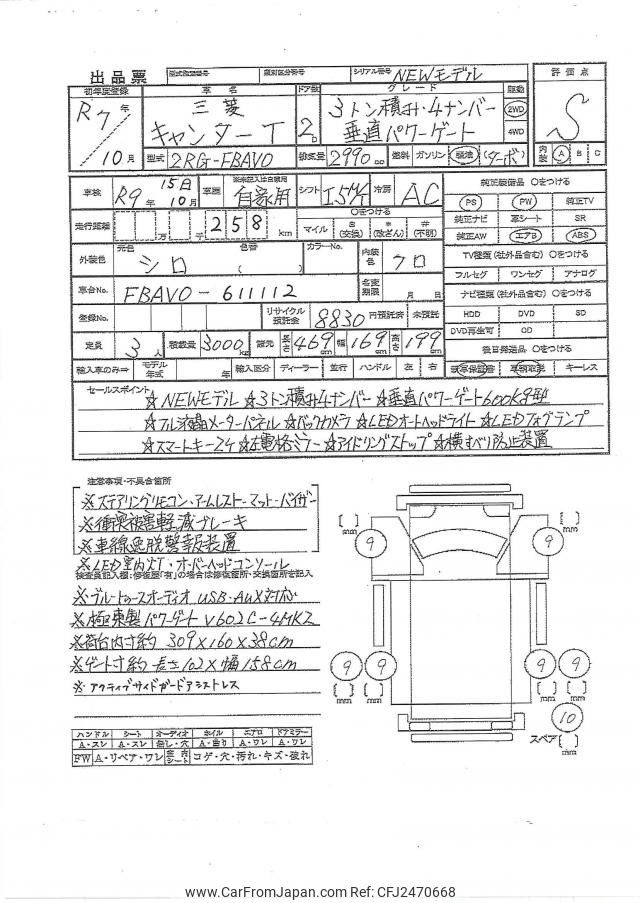 出品票 型式指定番号 類別区分番号 シリアル番号 NEWモデル 評価点
初年度登録 車名 ドア数 グレード 駆動
R7年 三菱 2D 3トン積み・4ナンバー 2WD S
10月 キャンターT 垂直パワーゲート 4WD
型式 2RG-FBAV0 排気量 2990cc 燃料 ガソリン 軽油 (ターボ) 内装 A B C
車検 R9年 15日 10月 車歴 ※未記入は自家用 自家用 シフト I5M/T 冷房 AC 純正装備品 ○をつける
PS PW 純正TV
走行距離 万 千 258 km ○をつける マイル *(交換) *(改ざん) #(不明) 純正ナビ 革シート SR
純正AW エアB ABS
外装色 元色 シロ 色替 カラーNo. 内装色 クロ TV種類(社外品含む) ○をつける
フルセグ ワンセグ アナログ
車台No. FBAV0-611112 名変期限 月 日 ナビ種類(社外品含む) ○をつける
登録No. リサイクル預託金 8830 円預託済 未預託 HDD DVD SD
DVD再生可 CD
定員 3人 積載量 3000kg 諸元 長さ 469cm 幅 169cm 高さ 199cm 後日発送品 ○をつける
輸入車のみ⇒ モデル年式 年 輸入区分 ディーラー 並行 ハンドル 左 右 新車保証書 車輌取説 キーレス
セールスポイント
☆NEWモデル ☆3トン積み4ナンバー ☆垂直パワーゲート600kg型
☆フル液晶メーターパネル ☆バックカメラ ☆LEDオートヘッドライト ☆LEDフォグランプ
☆スマートキー2ケ ☆左電格ミラー ☆アイドリングストップ ☆横すべり防止装置
注意事項・不具合箇所
※ステアリングリモコン・アームレスト・マット・バイザー
※衝突被害軽減ブレーキ
※車線逸脱警報装置
※LED室内灯・オーバーヘッドコンソール
検査員記入欄:修復歴「有」の場合は修復箇所・交換箇所を記入
※ブルートゥースオーディオ USB・AUX対応
※極東製パワーゲート V602C-4MKZ
※荷台内寸約 309×160×38cm
※ゲート寸約 長さ102×幅158cm
※アクティブサイドガードアシストレス
ハンドル シート オーディオ ホイル エアロ ドアミラー
A・スレ A・スレ 無し・穴 A・曲り A・ワレ A・ワレ
FW A・リペア・ワレ 室内シート コゲ・穴・汚れ・キズ・破れ
[ ]mm 9 9 [ ]mm
9 9 9 9
[ ]mm [ ]mm [ ]mm [ ]mm
10
スペア [ ]mm
www.CarFromJapan.com Ref: CFJ2470668